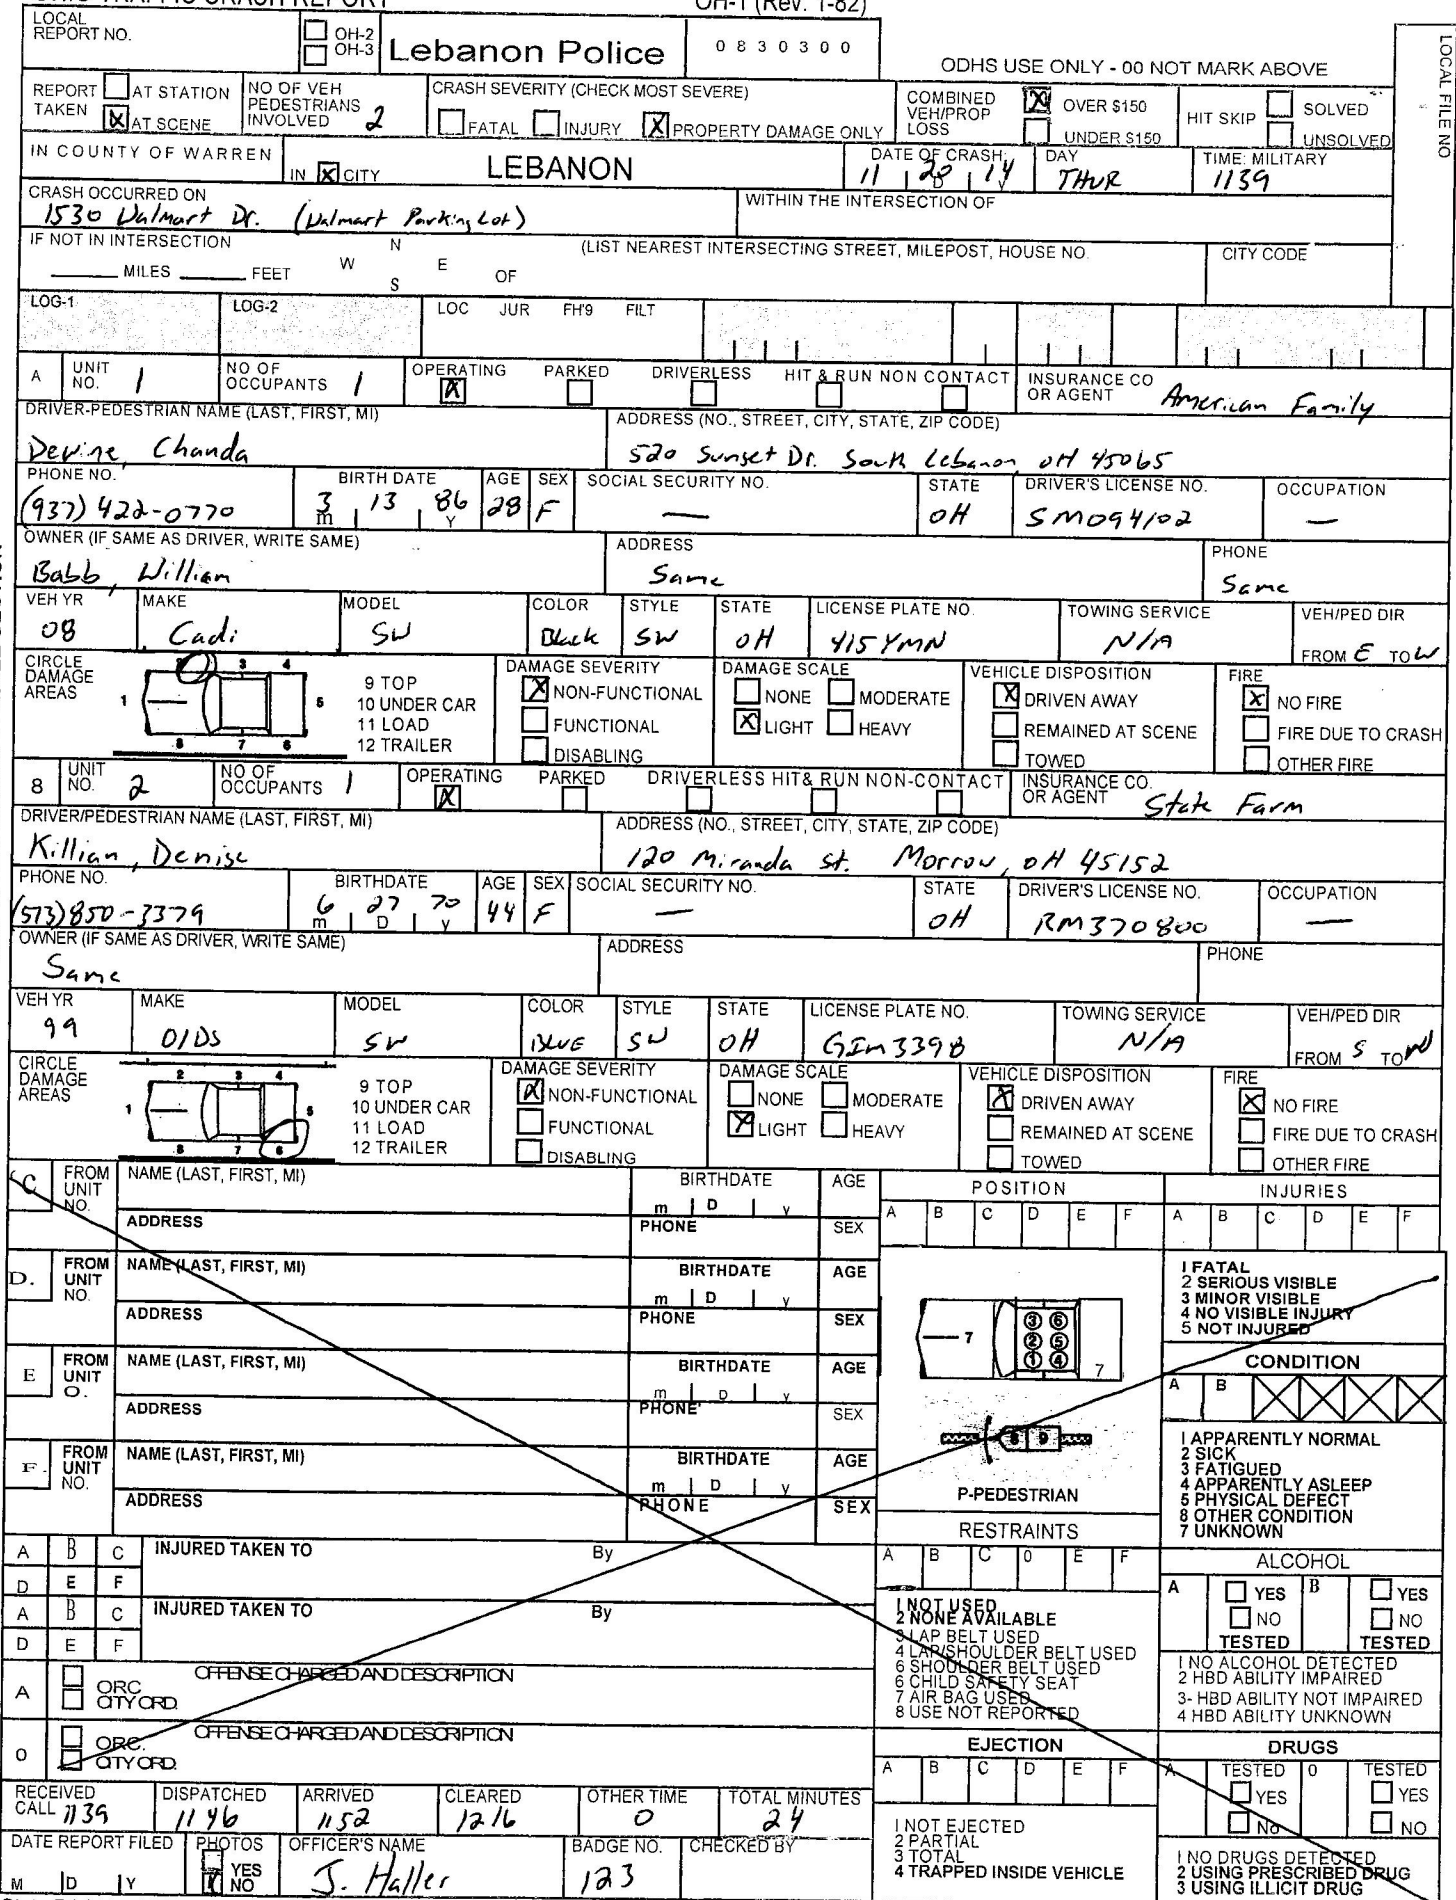 OH-1 (Rev. 1-82)
LOCAL REPORT NO. OH-2 OH-3 Lebanon Police 0830300
ODHS USE ONLY - 00 NOT MARK ABOVE
LOCAL FILE NO
REPORT TAKEN AT STATION X AT SCENE
NO OF VEH PEDESTRIANS INVOLVED 2
CRASH SEVERITY (CHECK MOST SEVERE)
FATAL INJURY X PROPERTY DAMAGE ONLY
COMBINED VEH/PROP LOSS X OVER $150 UNDER $150
HIT SKIP SOLVED UNSOLVED
IN COUNTY OF WARREN IN X CITY LEBANON
DATE OF CRASH: 11 20 14 D Y
DAY THUR
TIME: MILITARY 1139
CRASH OCCURRED ON
1530 Walmart Dr. (Walmart Parking Lot)
WITHIN THE INTERSECTION OF
IF NOT IN INTERSECTION
MILES FEET N W E S OF
(LIST NEAREST INTERSECTING STREET, MILEPOST, HOUSE NO.
CITY CODE
LOG-1 LOG-2 LOC JUR FH'9 FILT
A UNIT NO. 1 NO OF OCCUPANTS 1
OPERATING X PARKED DRIVERLESS HIT & RUN NON CONTACT
INSURANCE CO OR AGENT American Family
DRIVER-PEDESTRIAN NAME (LAST, FIRST, MI)
Devine, Chanda
ADDRESS (NO., STREET, CITY, STATE, ZIP CODE)
520 Sunset Dr. South Lebanon, OH 45065
PHONE NO. (937) 422-0770
BIRTH DATE 3 13 86 m Y
AGE 28 SEX F
SOCIAL SECURITY NO. —
STATE OH
DRIVER'S LICENSE NO. SM094102
OCCUPATION —
OWNER (IF SAME AS DRIVER, WRITE SAME)
Babb, William
ADDRESS Same
PHONE Same
VEH YR 08 MAKE Cadi MODEL SW COLOR Black STYLE SW STATE OH
LICENSE PLATE NO. 415YMN
TOWING SERVICE N/A
VEH/PED DIR FROM E TO W
CIRCLE DAMAGE AREAS
1 2 3 4 5 6 7 8
9 TOP
10 UNDER CAR
11 LOAD
12 TRAILER
DAMAGE SEVERITY X NON-FUNCTIONAL FUNCTIONAL DISABLING
DAMAGE SCALE NONE MODERATE X LIGHT HEAVY
VEHICLE DISPOSITION X DRIVEN AWAY REMAINED AT SCENE TOWED
FIRE X NO FIRE FIRE DUE TO CRASH OTHER FIRE
8 UNIT NO. 2 NO OF OCCUPANTS 1
OPERATING X PARKED DRIVERLESS HIT & RUN NON-CONTACT
INSURANCE CO. OR AGENT State Farm
DRIVER/PEDESTRIAN NAME (LAST, FIRST, MI)
Killian, Denise
ADDRESS (NO., STREET, CITY, STATE, ZIP CODE)
120 Miranda St. Morrow, OH 45152
PHONE NO. (513) 850-3379
BIRTHDATE 6 27 70 m D y
AGE 44 SEX F
SOCIAL SECURITY NO. —
STATE OH
DRIVER'S LICENSE NO. RM370800
OCCUPATION —
OWNER (IF SAME AS DRIVER, WRITE SAME)
Same
ADDRESS
PHONE
VEH YR 99 MAKE OlDS MODEL SW COLOR BLUE STYLE SW STATE OH
LICENSE PLATE NO. GIM3398
TOWING SERVICE N/A
VEH/PED DIR FROM S TO W
CIRCLE DAMAGE AREAS
1 2 3 4 5 6 7 8
9 TOP
10 UNDER CAR
11 LOAD
12 TRAILER
DAMAGE SEVERITY X NON-FUNCTIONAL FUNCTIONAL DISABLING
DAMAGE SCALE NONE MODERATE X LIGHT HEAVY
VEHICLE DISPOSITION X DRIVEN AWAY REMAINED AT SCENE TOWED
FIRE X NO FIRE FIRE DUE TO CRASH OTHER FIRE
C FROM UNIT NO. NAME (LAST, FIRST, MI) BIRTHDATE m D y AGE
ADDRESS PHONE SEX
D. FROM UNIT NO. NAME (LAST, FIRST, MI) BIRTHDATE m D y AGE
ADDRESS PHONE SEX
E FROM UNIT O. NAME (LAST, FIRST, MI) BIRTHDATE m D y AGE
ADDRESS PHONE SEX
F. FROM UNIT NO. NAME (LAST, FIRST, MI) BIRTHDATE m D y AGE
ADDRESS PHONE SEX
POSITION
A B C D E F
7 3 6 2 5 1 4 7
P-PEDESTRIAN
INJURIES
A B C D E F
I FATAL
2 SERIOUS VISIBLE
3 MINOR VISIBLE
4 NO VISIBLE INJURY
5 NOT INJURED
CONDITION
A B
I APPARENTLY NORMAL
2 SICK
3 FATIGUED
4 APPARENTLY ASLEEP
5 PHYSICAL DEFECT
8 OTHER CONDITION
7 UNKNOWN
A B C D E F INJURED TAKEN TO By
A B C D E F INJURED TAKEN TO By
A ORC CITY ORD. OFFENSE CHARGED AND DESCRIPTION
O ORC. CITY ORD. OFFENSE CHARGED AND DESCRIPTION
RESTRAINTS
A B C 0 E F
I NOT USED
2 NONE AVAILABLE
3 LAP BELT USED
4 LAP/SHOULDER BELT USED
6 SHOULDER BELT USED
6 CHILD SAFETY SEAT
7 AIR BAG USED
8 USE NOT REPORTED
ALCOHOL
A YES NO TESTED B YES NO TESTED
I NO ALCOHOL DETECTED
2 HBD ABILITY IMPAIRED
3- HBD ABILITY NOT IMPAIRED
4 HBD ABILITY UNKNOWN
EJECTION
A B C D E F
I NOT EJECTED
2 PARTIAL
3 TOTAL
4 TRAPPED INSIDE VEHICLE
DRUGS
A TESTED YES No 0 TESTED YES NO
I NO DRUGS DETECTED
2 USING PRESCRIBED DRUG
3 USING ILLICIT DRUG
RECEIVED CALL 1139 DISPATCHED 1146 ARRIVED 1152 CLEARED 1216 OTHER TIME 0 TOTAL MINUTES 24
DATE REPORT FILED M D Y
PHOTOS YES NO
OFFICER'S NAME J. Haller
BADGE NO. 123
CHECKED BY